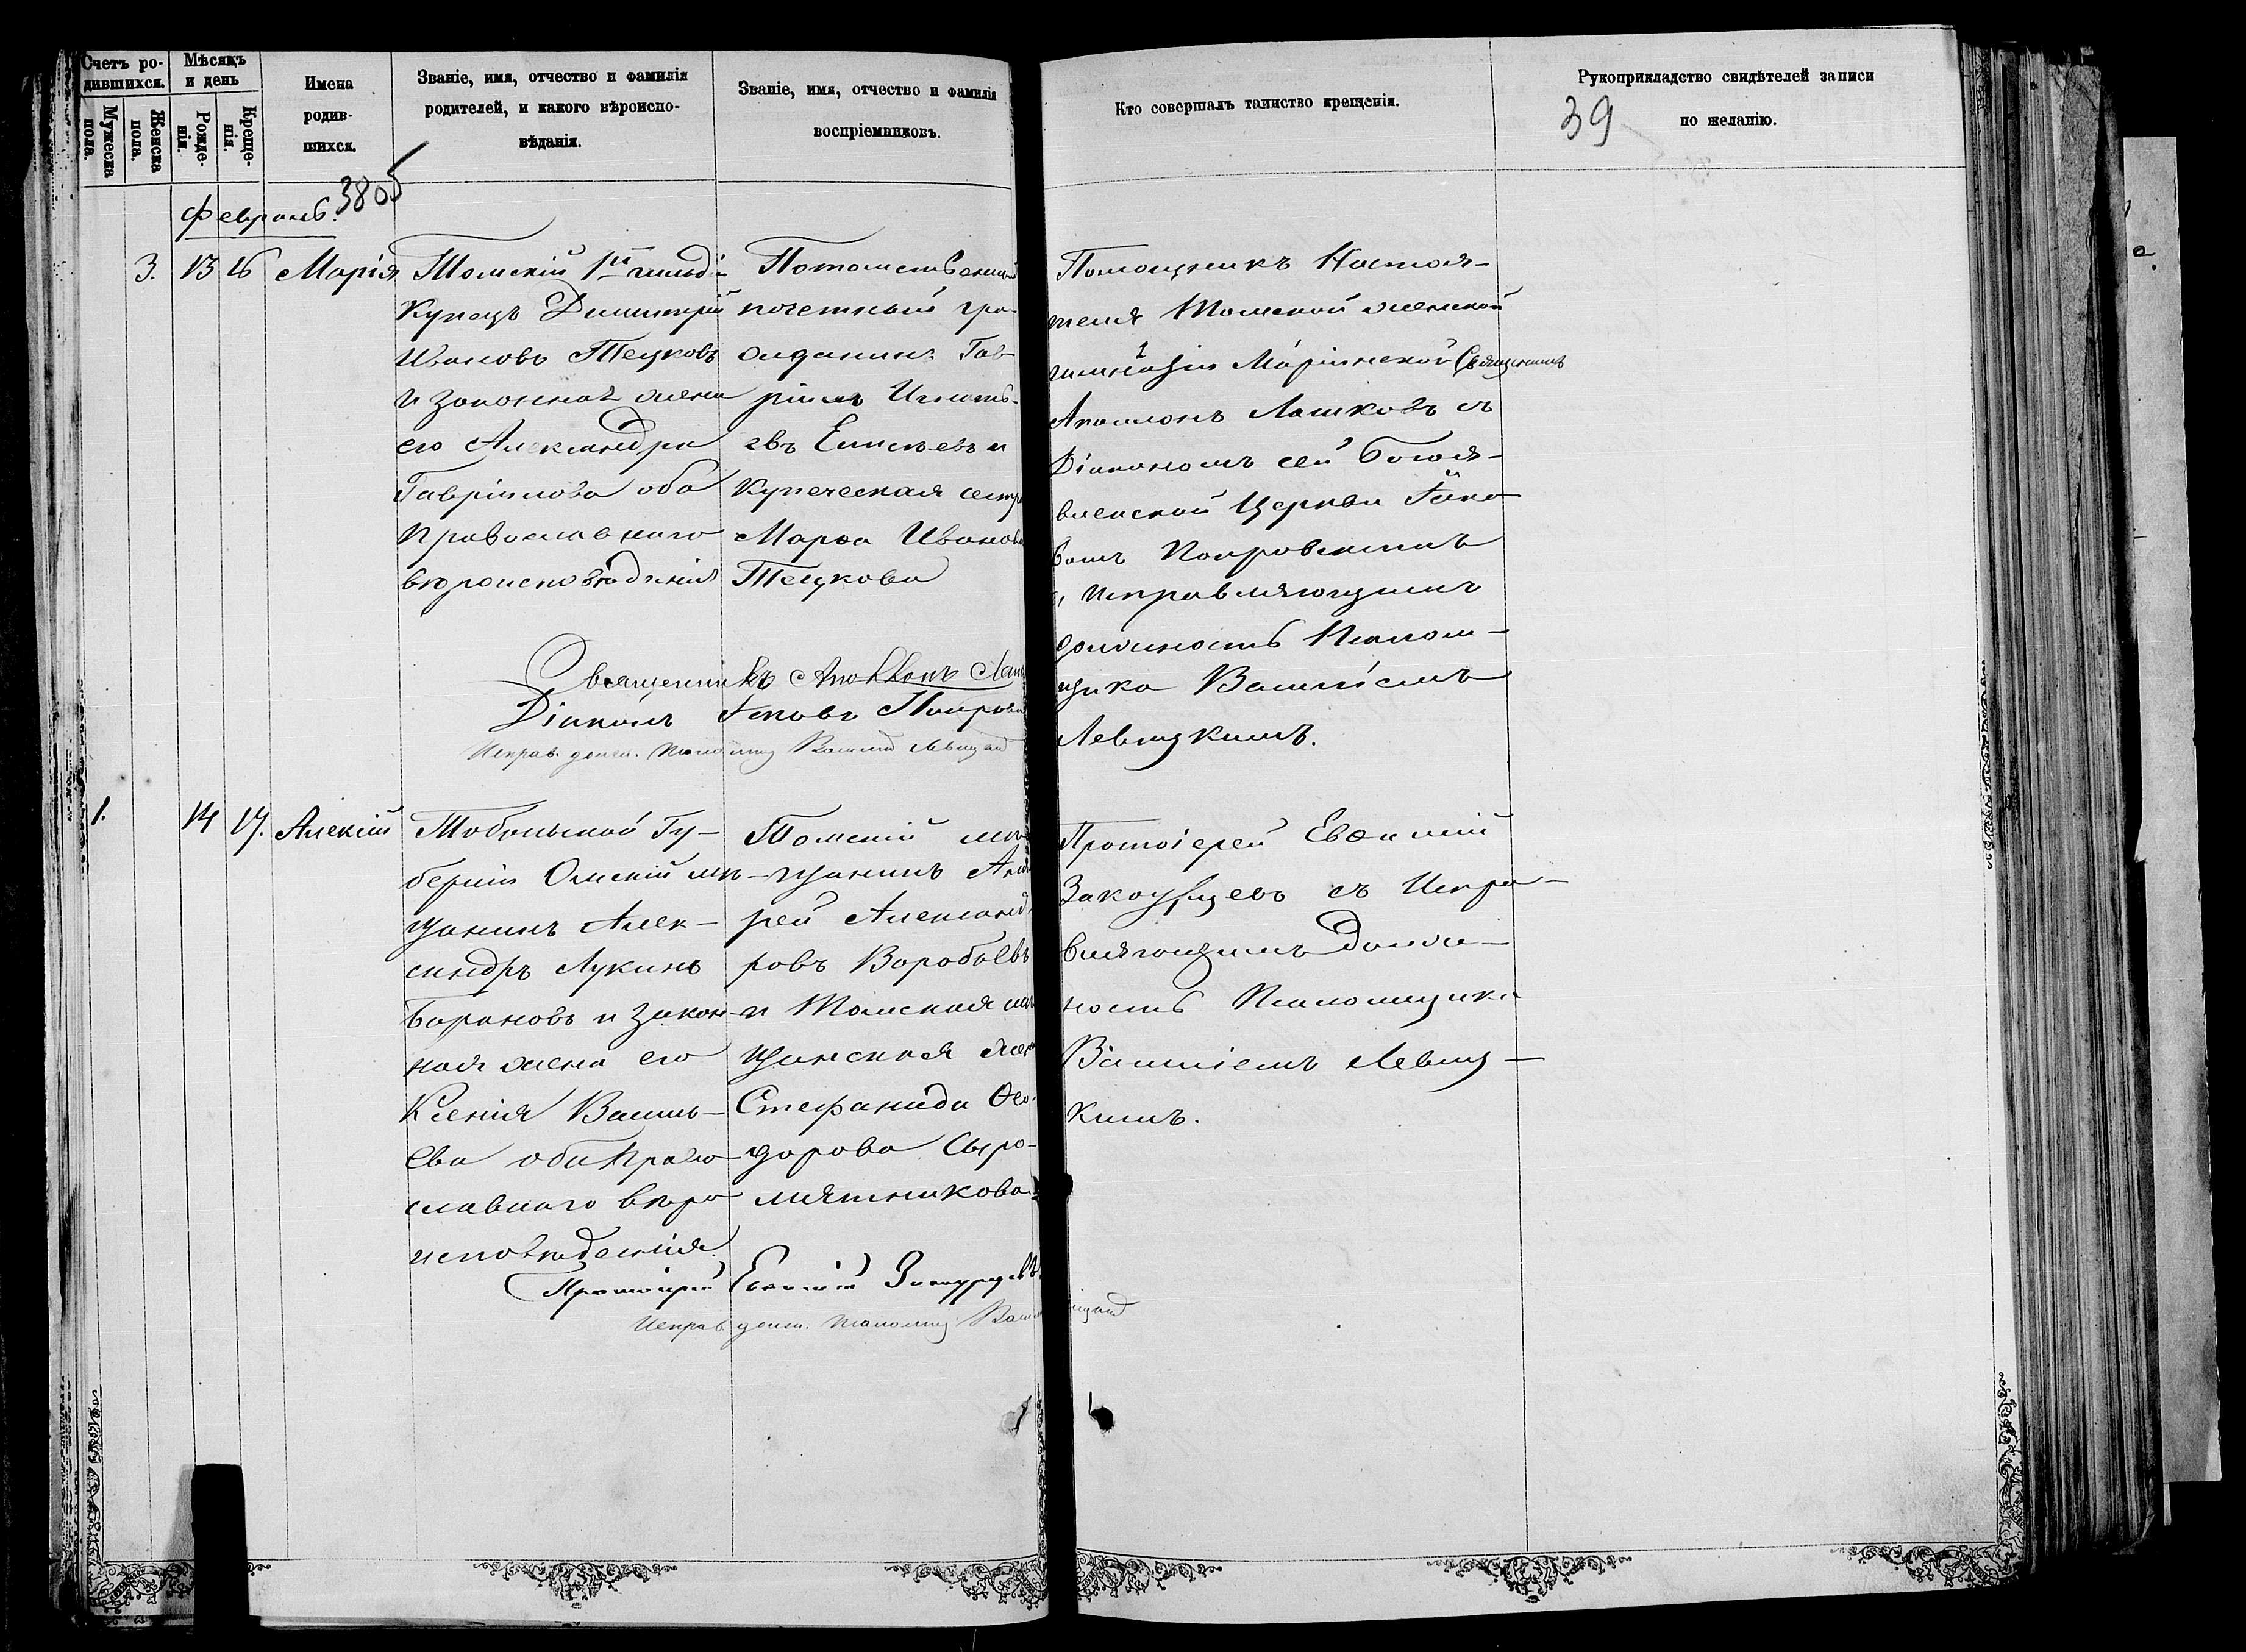 Счетъ ро-
дившихся.
Мужеска
пола.
Женска
пола.
Мѣсяцъ
и день
Рожде-
нія.
Креще-
нія.
Имена
родив-
шихся.
Званіе, имя, отчество и фамилія
родителей, и какого вѣроиспо-
вѣданія.
Званіе, имя, отчество и фамилія
воспріемниковъ.
Кто совершалъ таинство крещенія.
Рукоприкладство свидѣтелей записи
по желанію.
39
Февраль.
3.
13
16
Марія
Томскій 1й гильдіи
Купецъ Димитрій
Ивановъ Тецковъ
и законная жена
его Александра
Гавріилова оба
православнаго
вѣроисповѣданія
Потомственный
почетный гра-
жданинъ Гав-
ріилъ Игнать-
евъ Елисѣевъ и
Купеческая сестра
Марѳа Иванова
Тецкова
Помощникъ Настоя-
теля Томской женской
гимназіи Маріинской Священникъ
Аполлонъ Лашковъ съ
Діакономъ сей Богоя-
вленской Церкви Іако-
вомъ Покровскимъ
и исправляющимъ
должность Псалом-
щика Василіемъ
Левицкимъ.
Священникъ Аполлонъ Лаш
Діаконъ Іаковъ Покровс
Исправ. долж. Псаломщ Василій Левицкій
1.
14
17.
Алексій
Тобольской Гу-
берніи Омскій мѣ-
щанинъ Алек-
сандръ Лукинъ
Барановъ и закон-
ная жена его
Ксенія Василь-
ева оба право-
славнаго вѣро
исповѣданія.
Томскій мѣ
щанинъ Анд
рей Александ
ровъ Воробьевъ
и Томская мѣ
щанская жена
Стефанида Ѳео-
дорова Сыро-
мятникова
Протоіерей Евѳимій
Закоурцевъ съ Испра-
вляющимъ Долж-
ность Псаломщика
Василіемъ Левиц-
кимъ.
Протоіерей Евѳимій Закоурцевъ
Исправ. долж. Псаломщ Васи ицкій